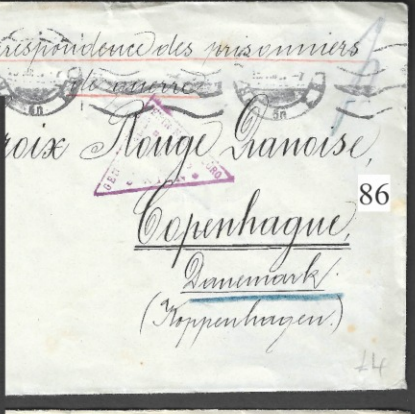 respondence des prisonniers
de guerre
roix Rouge Danoise,
86
Copenhague,
Danemark.
(Koppenhagen.)
£4